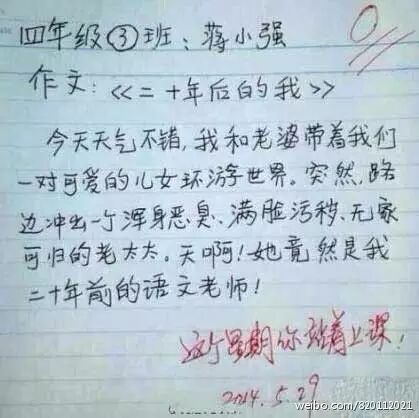 四年级③班：蒋小强
0
作文：《二十年后的我》
今天天气不错，我和老婆带着我们
一对可爱的儿女环游世界。突然，路
边冲出一个浑身恶臭、满脸污秽、无家
可归的老太太。天啊！她竟然是我
二十年前的语文老师！
这个星期你站着上课！
2014.5.29
weibo.com/820112021